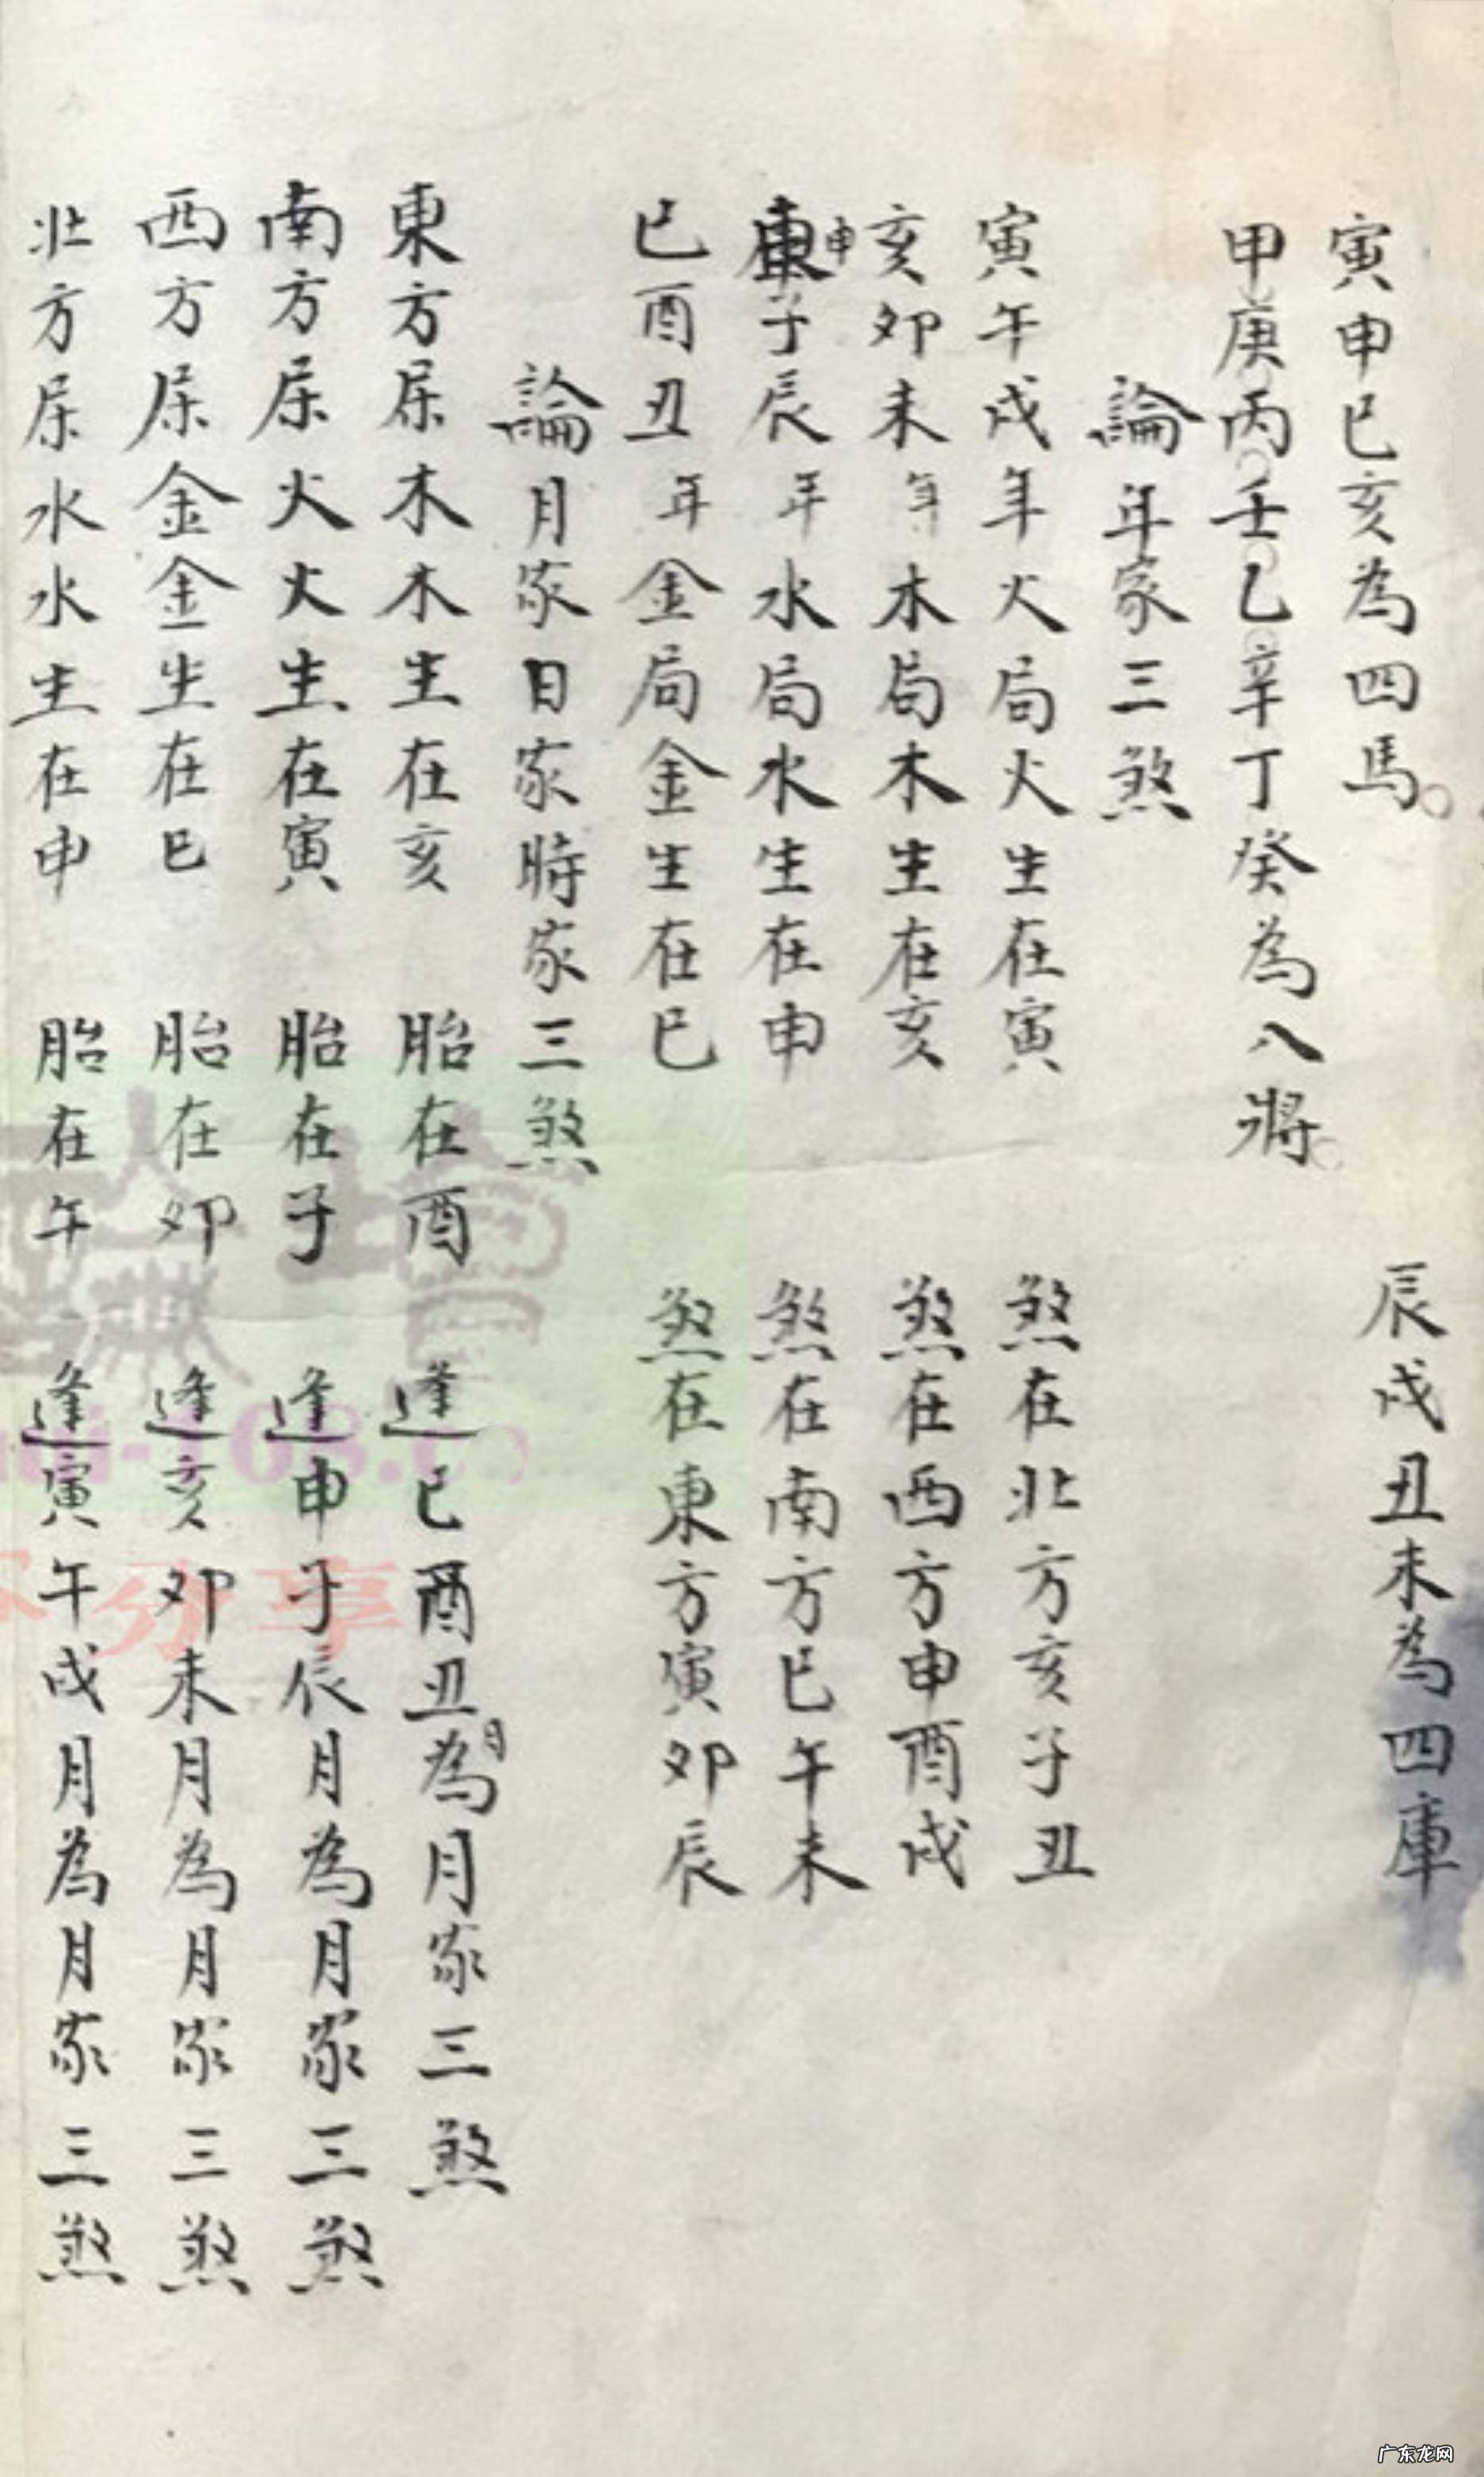 寅申巳亥為四馬。 辰戌丑未為四庫
甲庚丙壬乙辛丁癸為八將
論年家三煞
寅午戌年火局火生在寅 煞在北方亥子丑
亥卯未年木局木生在亥 煞在西方申酉戌
申子辰年水局水生在申 煞在南方巳午未
巳酉丑年金局金生在巳 煞在東方寅卯辰
論月家日家時家三煞
東方屬木木生在亥 胎在酉 逢巳酉丑月為月家三煞
南方屬火火生在寅 胎在子 逢申子辰月為月家三煞
西方屬金金生在巳 胎在卯 逢亥卯未月為月家三煞
北方屬水水生在申 胎在午 逢寅午戌月為月家三煞
分享
广东龙网